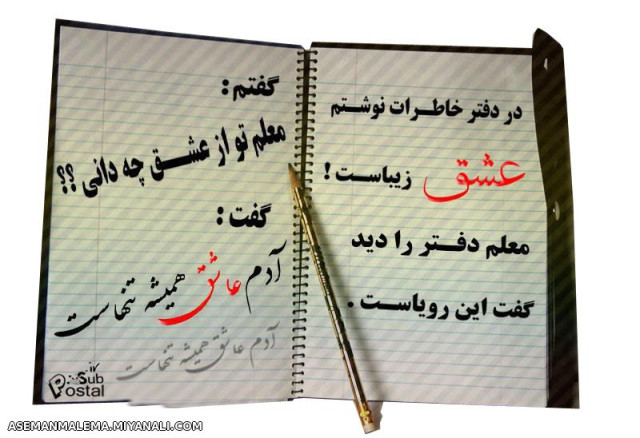 در دفتر خاطرات نوشتم
عشق زیباست !
معلم دفتر را دید
گفت این رویاست .
گفتم :
معلم تو از عشق چه دانی ؟؟
گفت :
آدم عاشق همیشه تنهاست
آدم عاشق همیشه تنهاست
Sub
Postal
ASEMANMALEMA.MIYANALI.COM